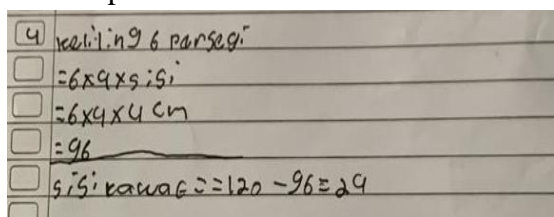 4 keliling 6 persegi
=6x4xsisi
=6x4x4 cm
=96
sisi kawat = =120 -96=24